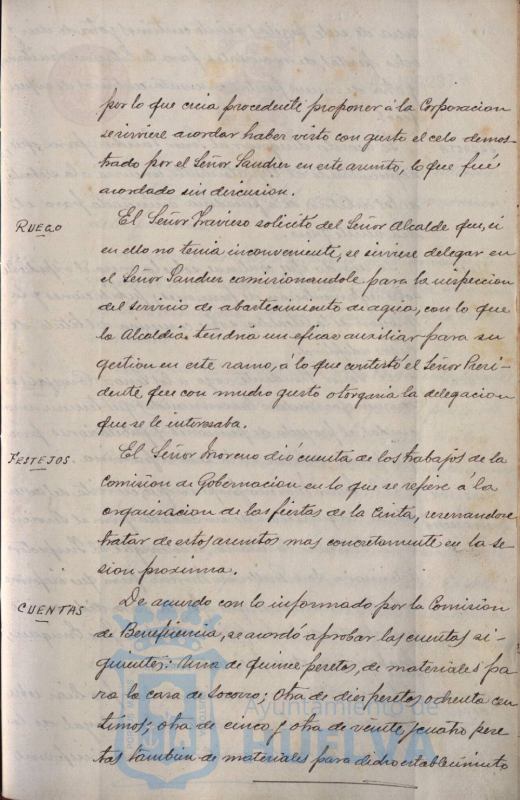 por lo que creia procedente proponer á la Corporacion
se sirviere acordar haber visto con gusto el celo demos-
trado por el Señor Sandier en este asunto, lo que fué
acordado sin discusion.
RUEGO
El Señor Travieso solicitó del Señor Alcalde que, si
en ello no tenia inconveniente, se sirviere delegar en
el Señor Sandier comisionandole para la inspeccion
del servicio de abastecimiento de agua, con lo que
la Alcaldia tendria un eficaz auxiliar para su
gestion en este ramo, á lo que contestó el Señor Presi-
dente, que con mucho gusto otorgaria la delegacion
que se le interesaba.
FESTEJOS
El Señor Moreno dió cuenta de los trabajos de la
Comision de Gobernacion en lo que se refiere á la
organizacion de las fiestas de la Cinta, reservandose
tratar de estos asuntos mas concretamente en la se-
sion proxima.
CUENTAS
De acuerdo con lo informado por la Comision
de Beneficencia, se acordó aprobar las cuentas si-
guientes: Una de quince pesetas, de materiales pa
ra la casa de Socorro; Otra de diez pesetas ochenta cen
timos; otra de cinco y otra de veinte y cuatro pese
tas tambien de materiales para dicho establecimiento
Ayuntamiento de
HUELVA